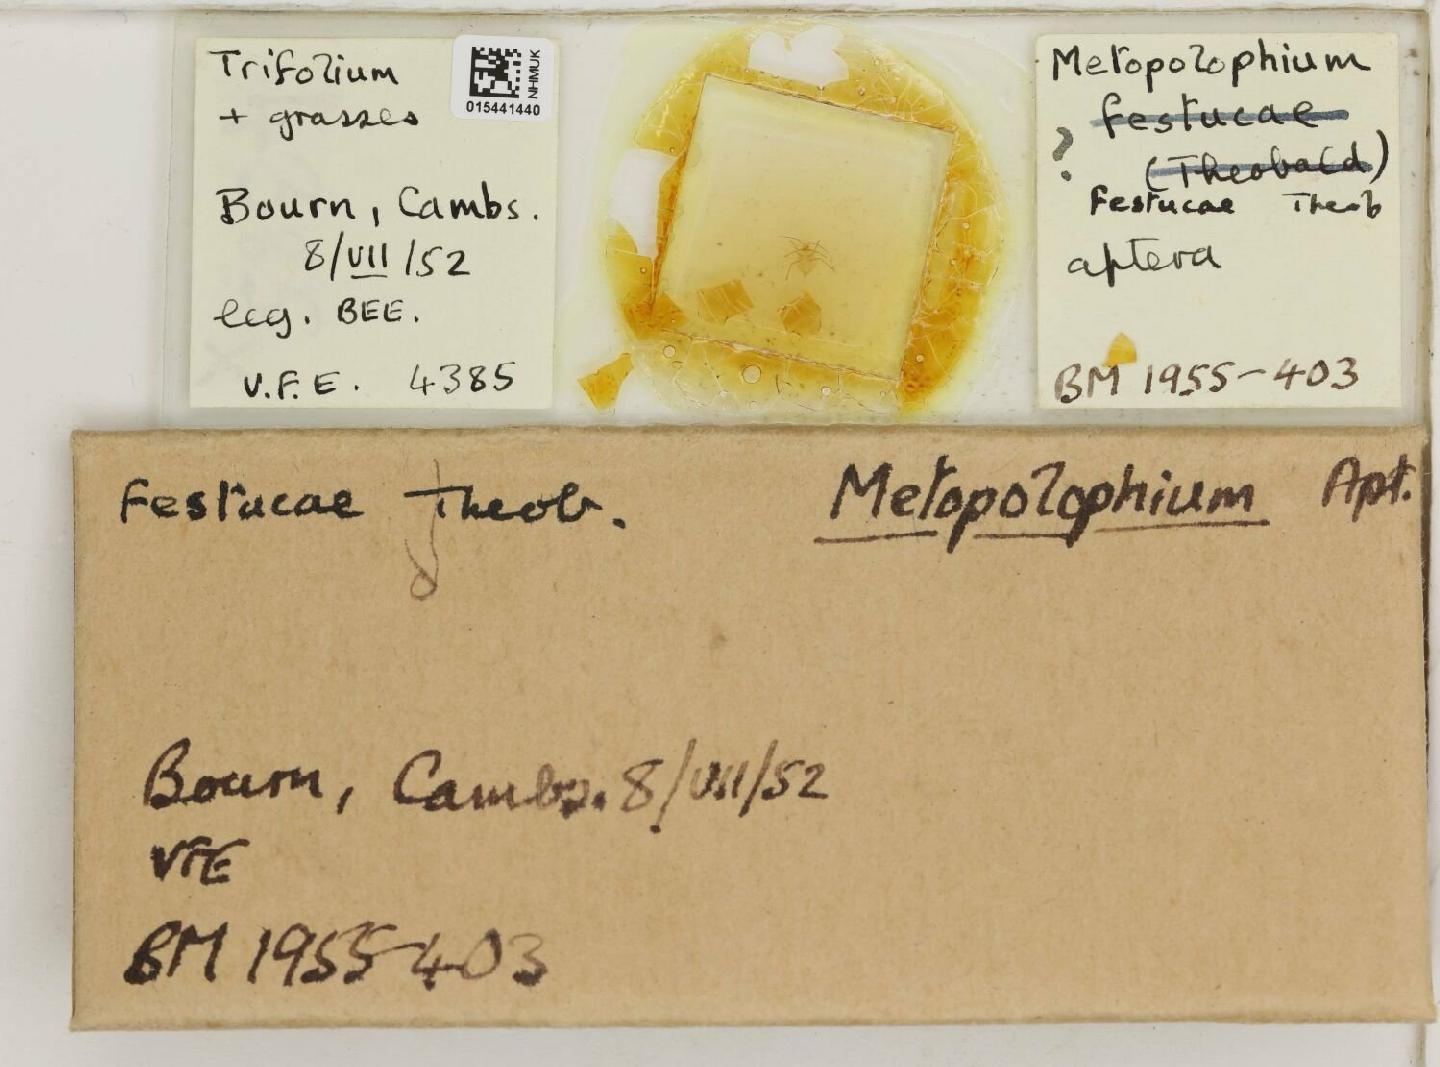 Trifolium
+ grasses
Bourn, Cambs.
8/VII/52
leg. BEE.
V.F.E. 4385
NHMUK
015441440
Metopolophium
festucae
? (Theobald)
Festucae Theob
aptera
BM 1955-403
Festucae Theob.
Metopolophium Apt.
Bourn, Cambs. 8/VII/52
VFE
BM 1955-403